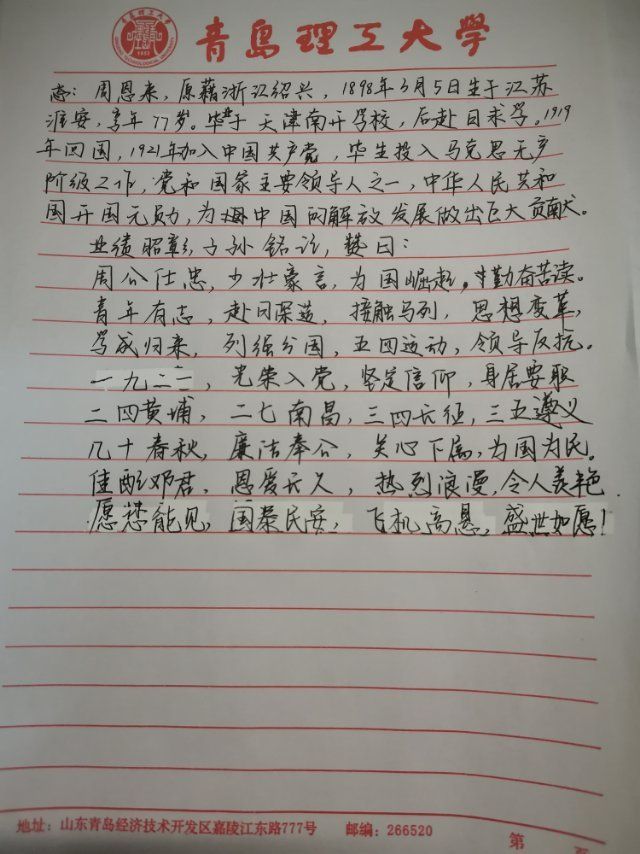 青岛理工大学
恋：周恩来，原籍浙江绍兴，1898年3月5日生于江苏
淮安，享年77岁。毕于天津南开学校，后赴日求学。1919
年回国，1921年加入中国共产党，毕生投入马克思无产
阶级工作，党和国家主要领导人之一，中华人民共和
国开国元勋，为中国的解放发展做出巨大贡献。
业绩昭彰，子孙铭记，赞曰：
周公仕忠，少壮豪言，为国崛起，勤奋苦读。
青年有志，赴日深造，接触马列，思想变革，
学成归来，列强分国，五四运动，领导反抗。
一九二一，光荣入党，坚定信仰，身居要职
二四黄埔，二七南昌，三四长征，三五遵义
几十春秋，廉洁奉公，关心下属，为国为民。
佳配邓君，恩爱长久，热烈浪漫，令人羡艳
愿慈能见，国泰民安，飞机高悬，盛世如愿！
地址：山东青岛经济技术开发区嘉陵江东路777号 邮编：266520 第 页